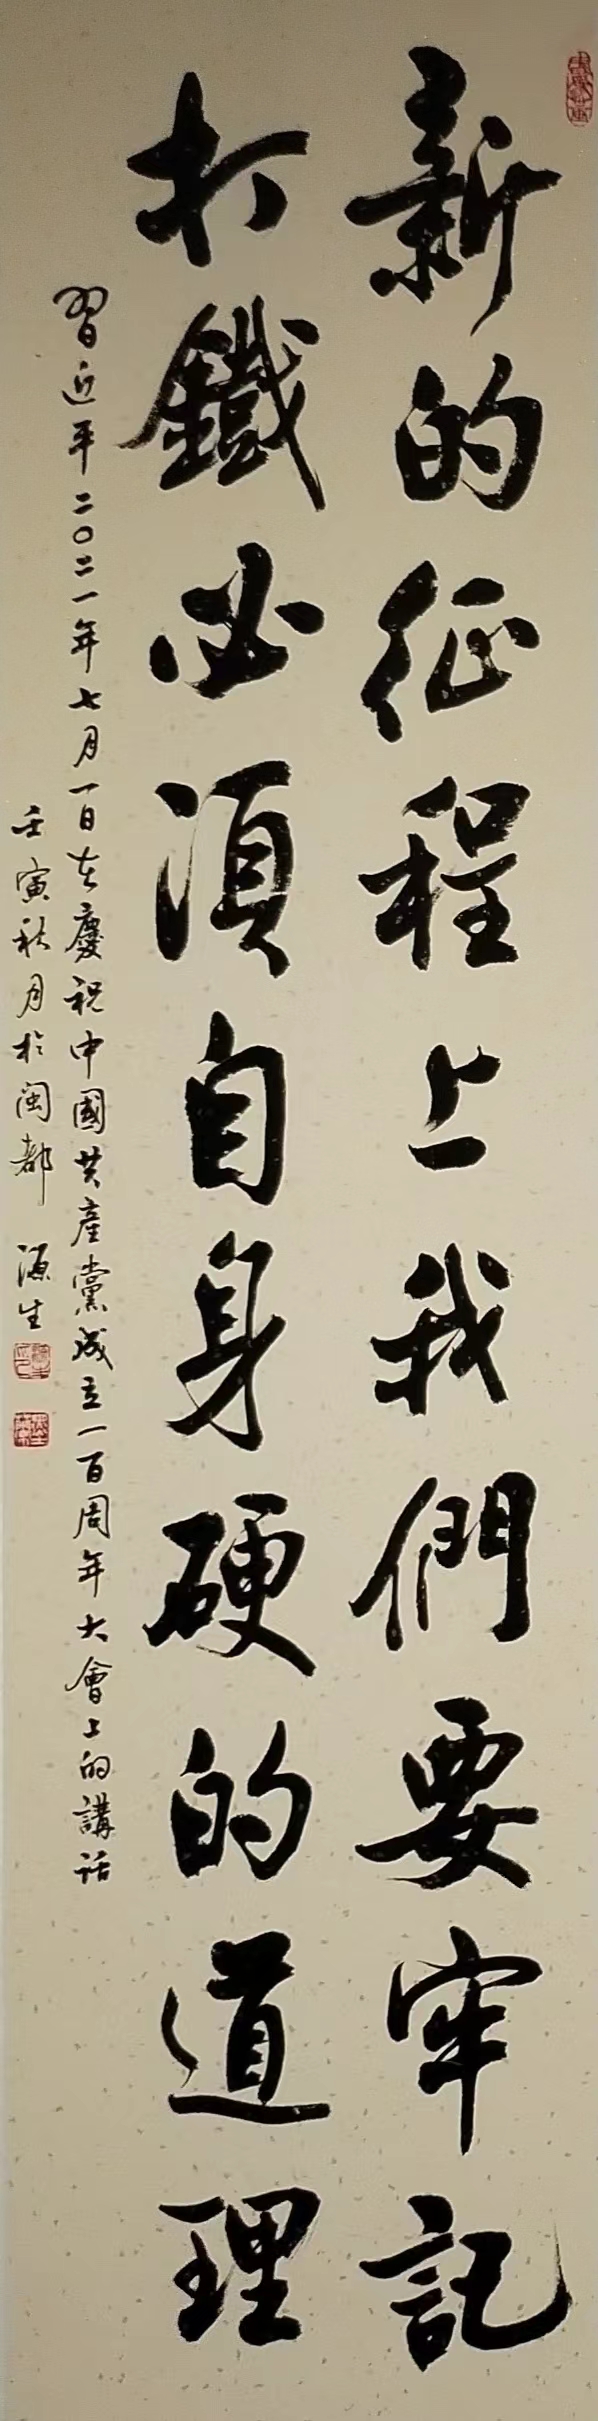 新的征程上我們要牢記
打鐵必須自身硬的道理
習近平二〇二一年七月一日在慶祝中國共產黨成立一百周年大會上的講話
壬寅秋月於閩都 源生